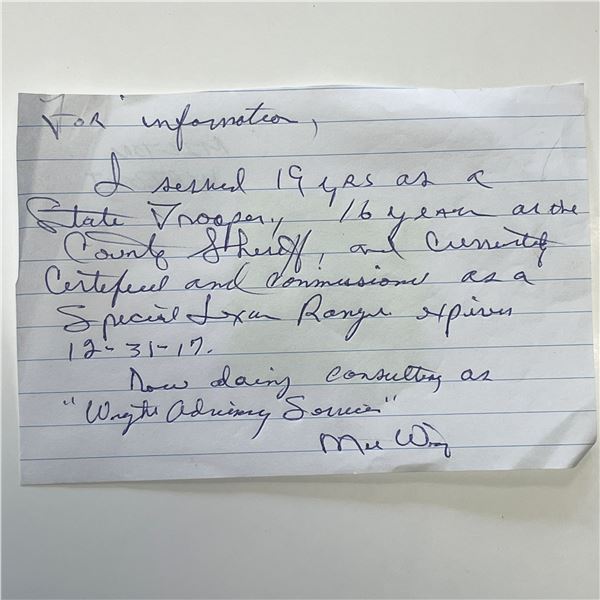 For information,
I served 19 yrs as a
State Trooper, 16 years as the
County Sheriff, and currently
Certified and commissioned as a
Special Texas Ranger expires
12-31-17.
Now doing consulting as
" Advisory Services"